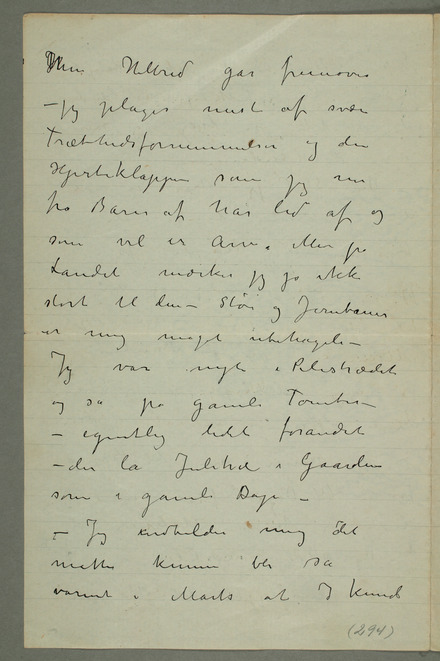 Min Helbred går fremover
— jeg plages mest af svær
Træthedsfornemmelser og den
Hjerteklappen som jeg nu
fra Barn af har lidt af og
som vel er Arv. Men på
Landet mærker jeg jo ikke
stort til den — Støi og Jernbaner
er mig meget ubehagelig —
Jeg var nylig i Pilestrædet
og så på gamle Tomter —
— egentlig lidet forandret
— der lå Juletræ i Gaarden
som i gamle Dage —
— Jeg indbilder mig det
måtte kunne bli så
varmt i Marts at I kunde
(294)